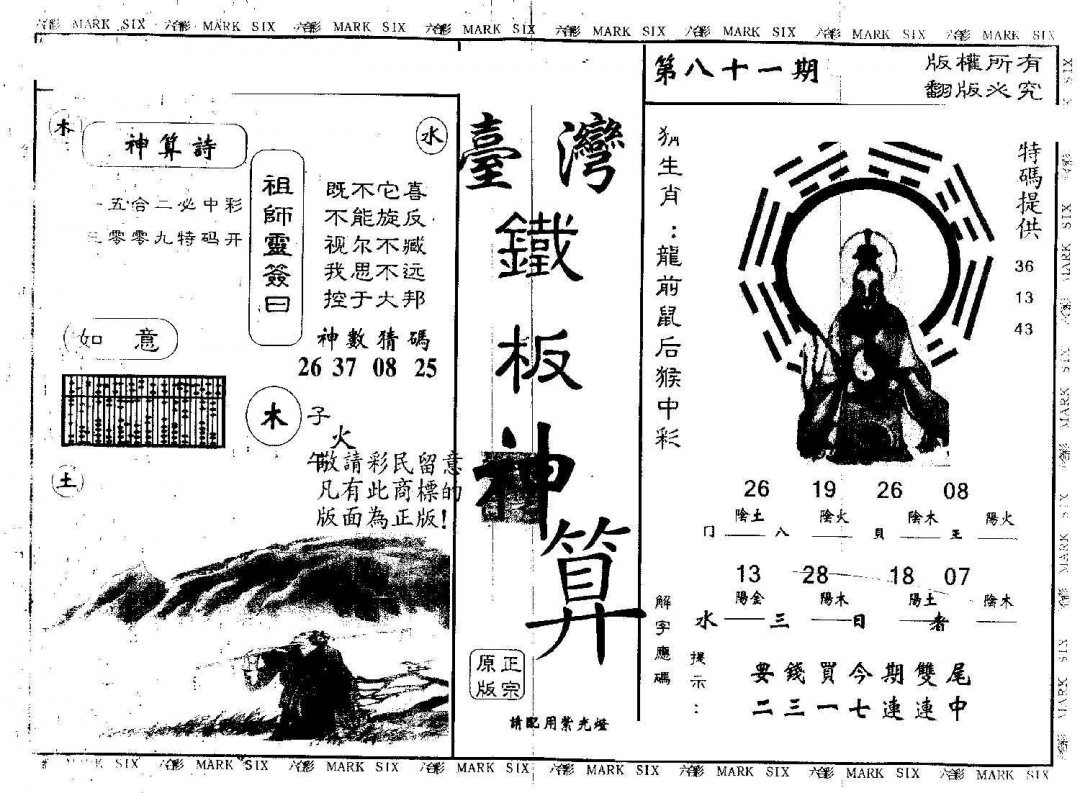 六合彩 MARK SIX 六合彩 MARK SIX 六合彩 MARK SIX 六合彩 MARK SIX 六合彩 MARK SIX 六合彩 MARK SIX 六合彩 MARK SIX 六合彩 MARK SIX
第八十一期
版權所有
翻版必究
木
神算詩
水
一五合二必中彩
三零零九特码开
祖師靈簽曰
既不它喜
不能旋反
视尔不臧
我思不远
控于大邦
神數猜碼
26 37 08 25
如意
木
子
火
午
土
敬請彩民留意
凡有此商標的
版面為正版!
臺灣
鐵板神算
正宗
原版
請配用紫光燈
生肖:龍前鼠后猴中彩
特碼提供
36
13
43
26 19 26 08
陰土 陰火 陰木 陽火
门 八 貝 王
13 28 18 07
陽金 陽木 陽土 陰木
水 三 日 者
解字應碼
提示:
要錢買今期雙尾
二三一七連連中
MARK SIX 六合彩 MARK SIX 六合彩 MARK SIX 六合彩 MARK SIX 六合彩 MARK SIX 六合彩 MARK SIX 六合彩 MARK SIX